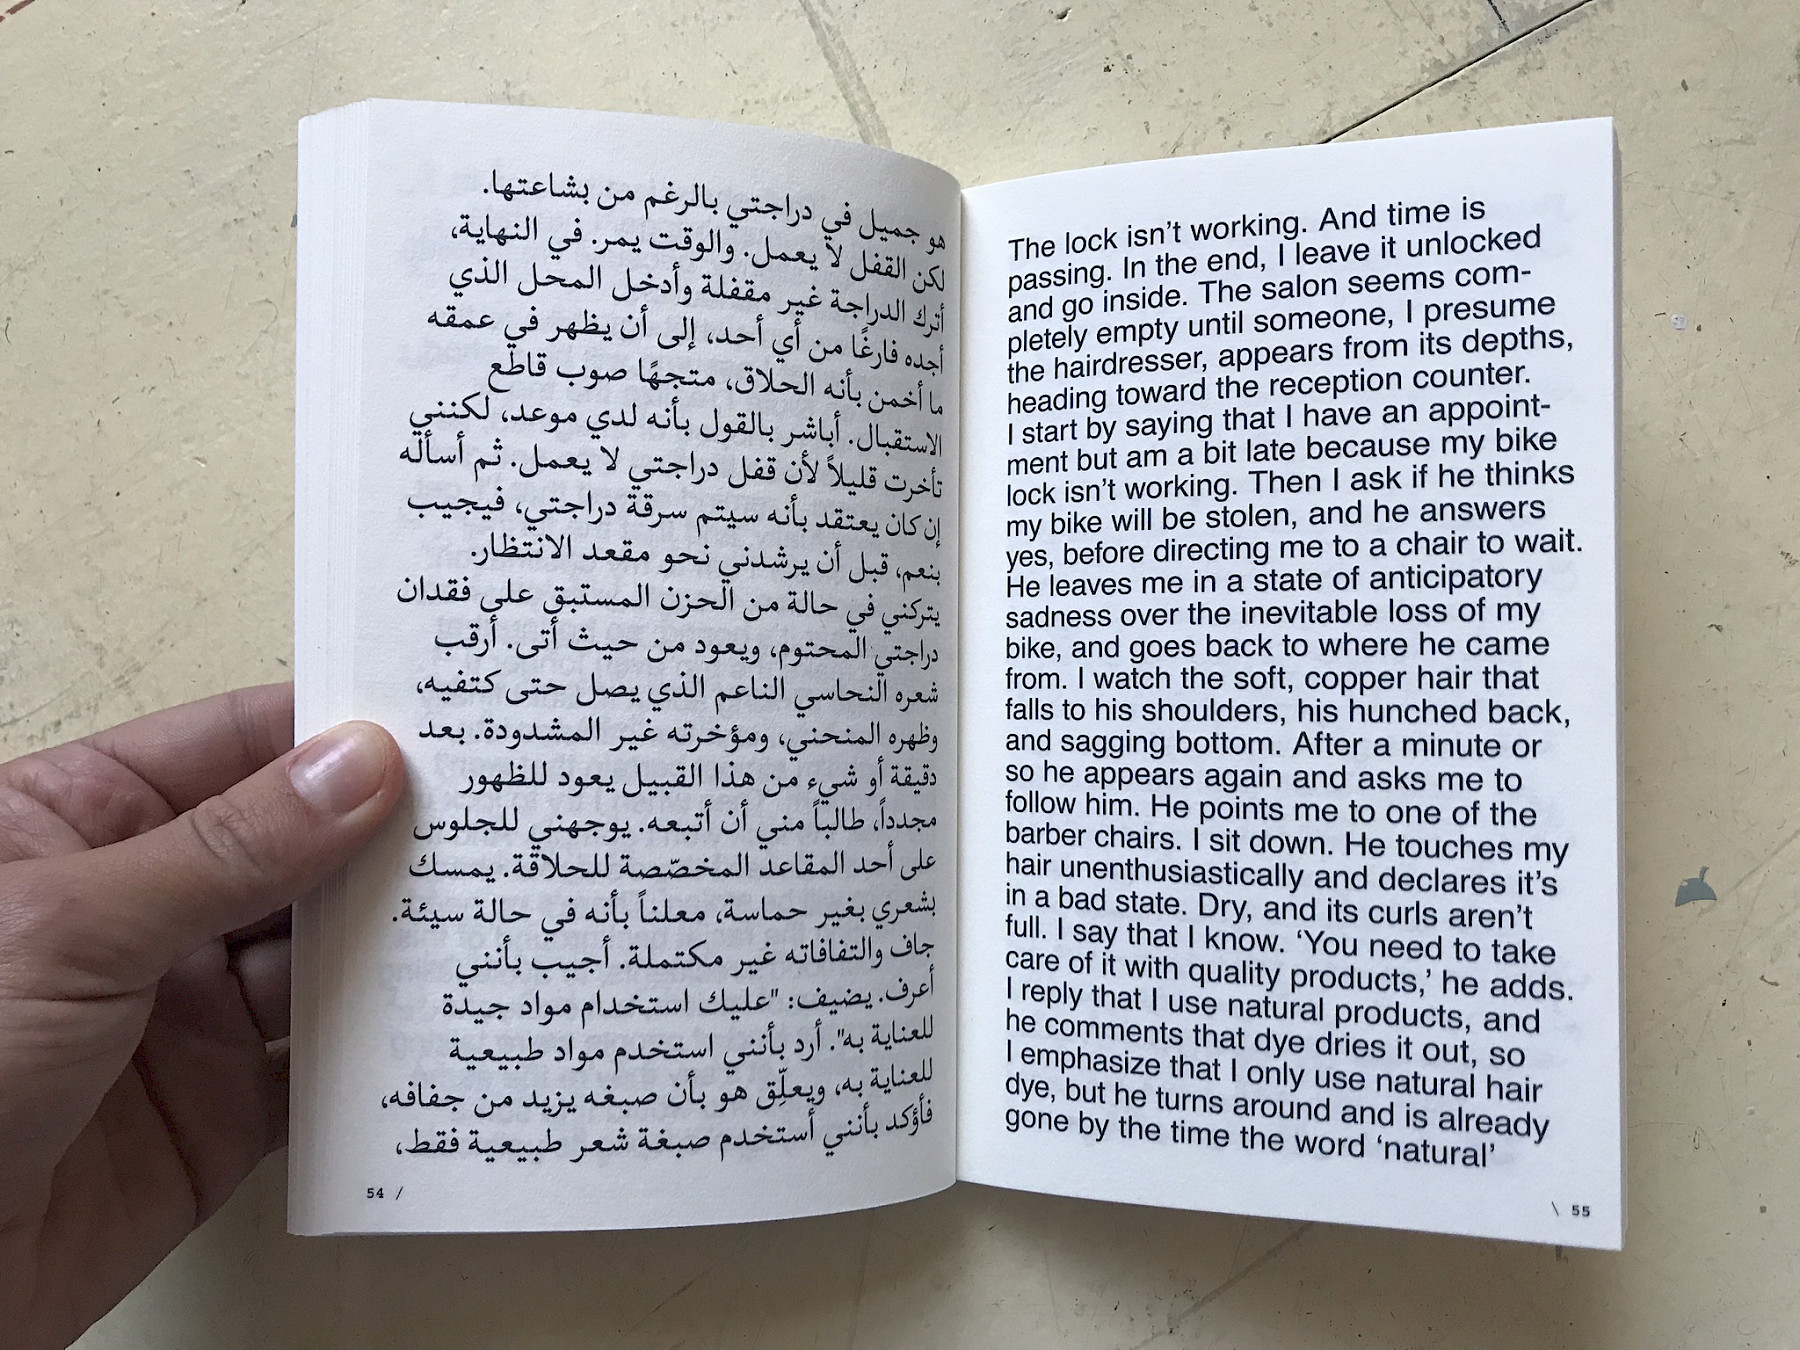 هو جميل في دراجتي بالرغم من بشاعتها.
لكن القفل لا يعمل. والوقت يمر. في النهاية،
أترك الدراجة غير مقفلة وأدخل المحل الذي
أجده فارغًا من أي أحد، إلى أن يظهر في عمقه
ما أخمن بأنه الحلاق، متجهًا صوب قاطع
الاستقبال. أباشر بالقول بأنه لدي موعد، لكنني
تأخرت قليلاً لأن قفل دراجتي لا يعمل. ثم أسأله
إن كان يعتقد بأنه سيتم سرقة دراجتي، فيجيب
بنعم، قبل أن يرشدني نحو مقعد الانتظار.
يتركني في حالة من الحزن المستبق على فقدان
دراجتي المحتوم، ويعود من حيث أتى. أرقب
شعره النحاسي الناعم الذي يصل حتى كتفيه،
وظهره المنحني، ومؤخرته غير المشدودة. بعد
دقيقة أو شيء من هذا القبيل يعود للظهور
مجدداً، طالباً مني أن أتبعه. يوجهني للجلوس
على أحد المقاعد المخصّصة للحلاقة. يمسك
بشعري بغير حماسة، معلناً بأنه في حالة سيئة.
جاف والتفافاته غير مكتملة. أجيب بأنني
أعرف. يضيف: "عليك استخدام مواد جيدة
للعناية به". أرد بأنني استخدم مواد طبيعية
للعناية به، ويعلّق هو بأن صبغه يزيد من جفافه،
فأؤكد بأنني أستخدم صبغة شعر طبيعية فقط،
54 /
The lock isn't working. And time is
passing. In the end, I leave it unlocked
and go inside. The salon seems com-
pletely empty until someone, I presume
the hairdresser, appears from its depths,
heading toward the reception counter.
I start by saying that I have an appoint-
ment but am a bit late because my bike
lock isn't working. Then I ask if he thinks
my bike will be stolen, and he answers
yes, before directing me to a chair to wait.
He leaves me in a state of anticipatory
sadness over the inevitable loss of my
bike, and goes back to where he came
from. I watch the soft, copper hair that
falls to his shoulders, his hunched back,
and sagging bottom. After a minute or
so he appears again and asks me to
follow him. He points me to one of the
barber chairs. I sit down. He touches my
hair unenthusiastically and declares it's
in a bad state. Dry, and its curls aren't
full. I say that I know. 'You need to take
care of it with quality products,' he adds.
I reply that I use natural products, and
he comments that dye dries it out, so
I emphasize that I only use natural hair
dye, but he turns around and is already
gone by the time the word 'natural'
\ 55